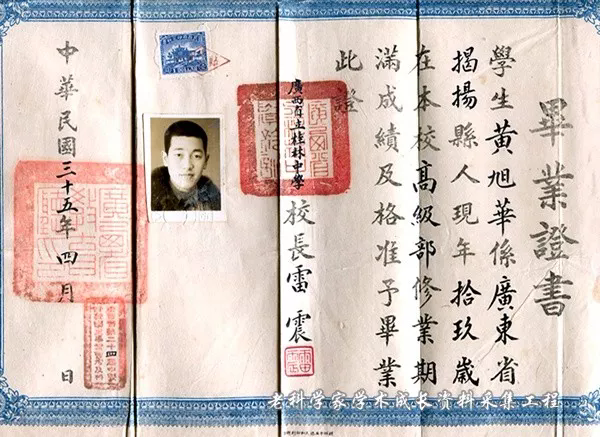 畢業證書
學生黃旭華係廣東省
揭揚縣人現年拾玖歲
在本校高級部修業期
滿成績及格准予畢業
此證
廣西省立桂林中學
校長雷震
中華民國三十五年四月 日
老科学家学术成长资料采集工程